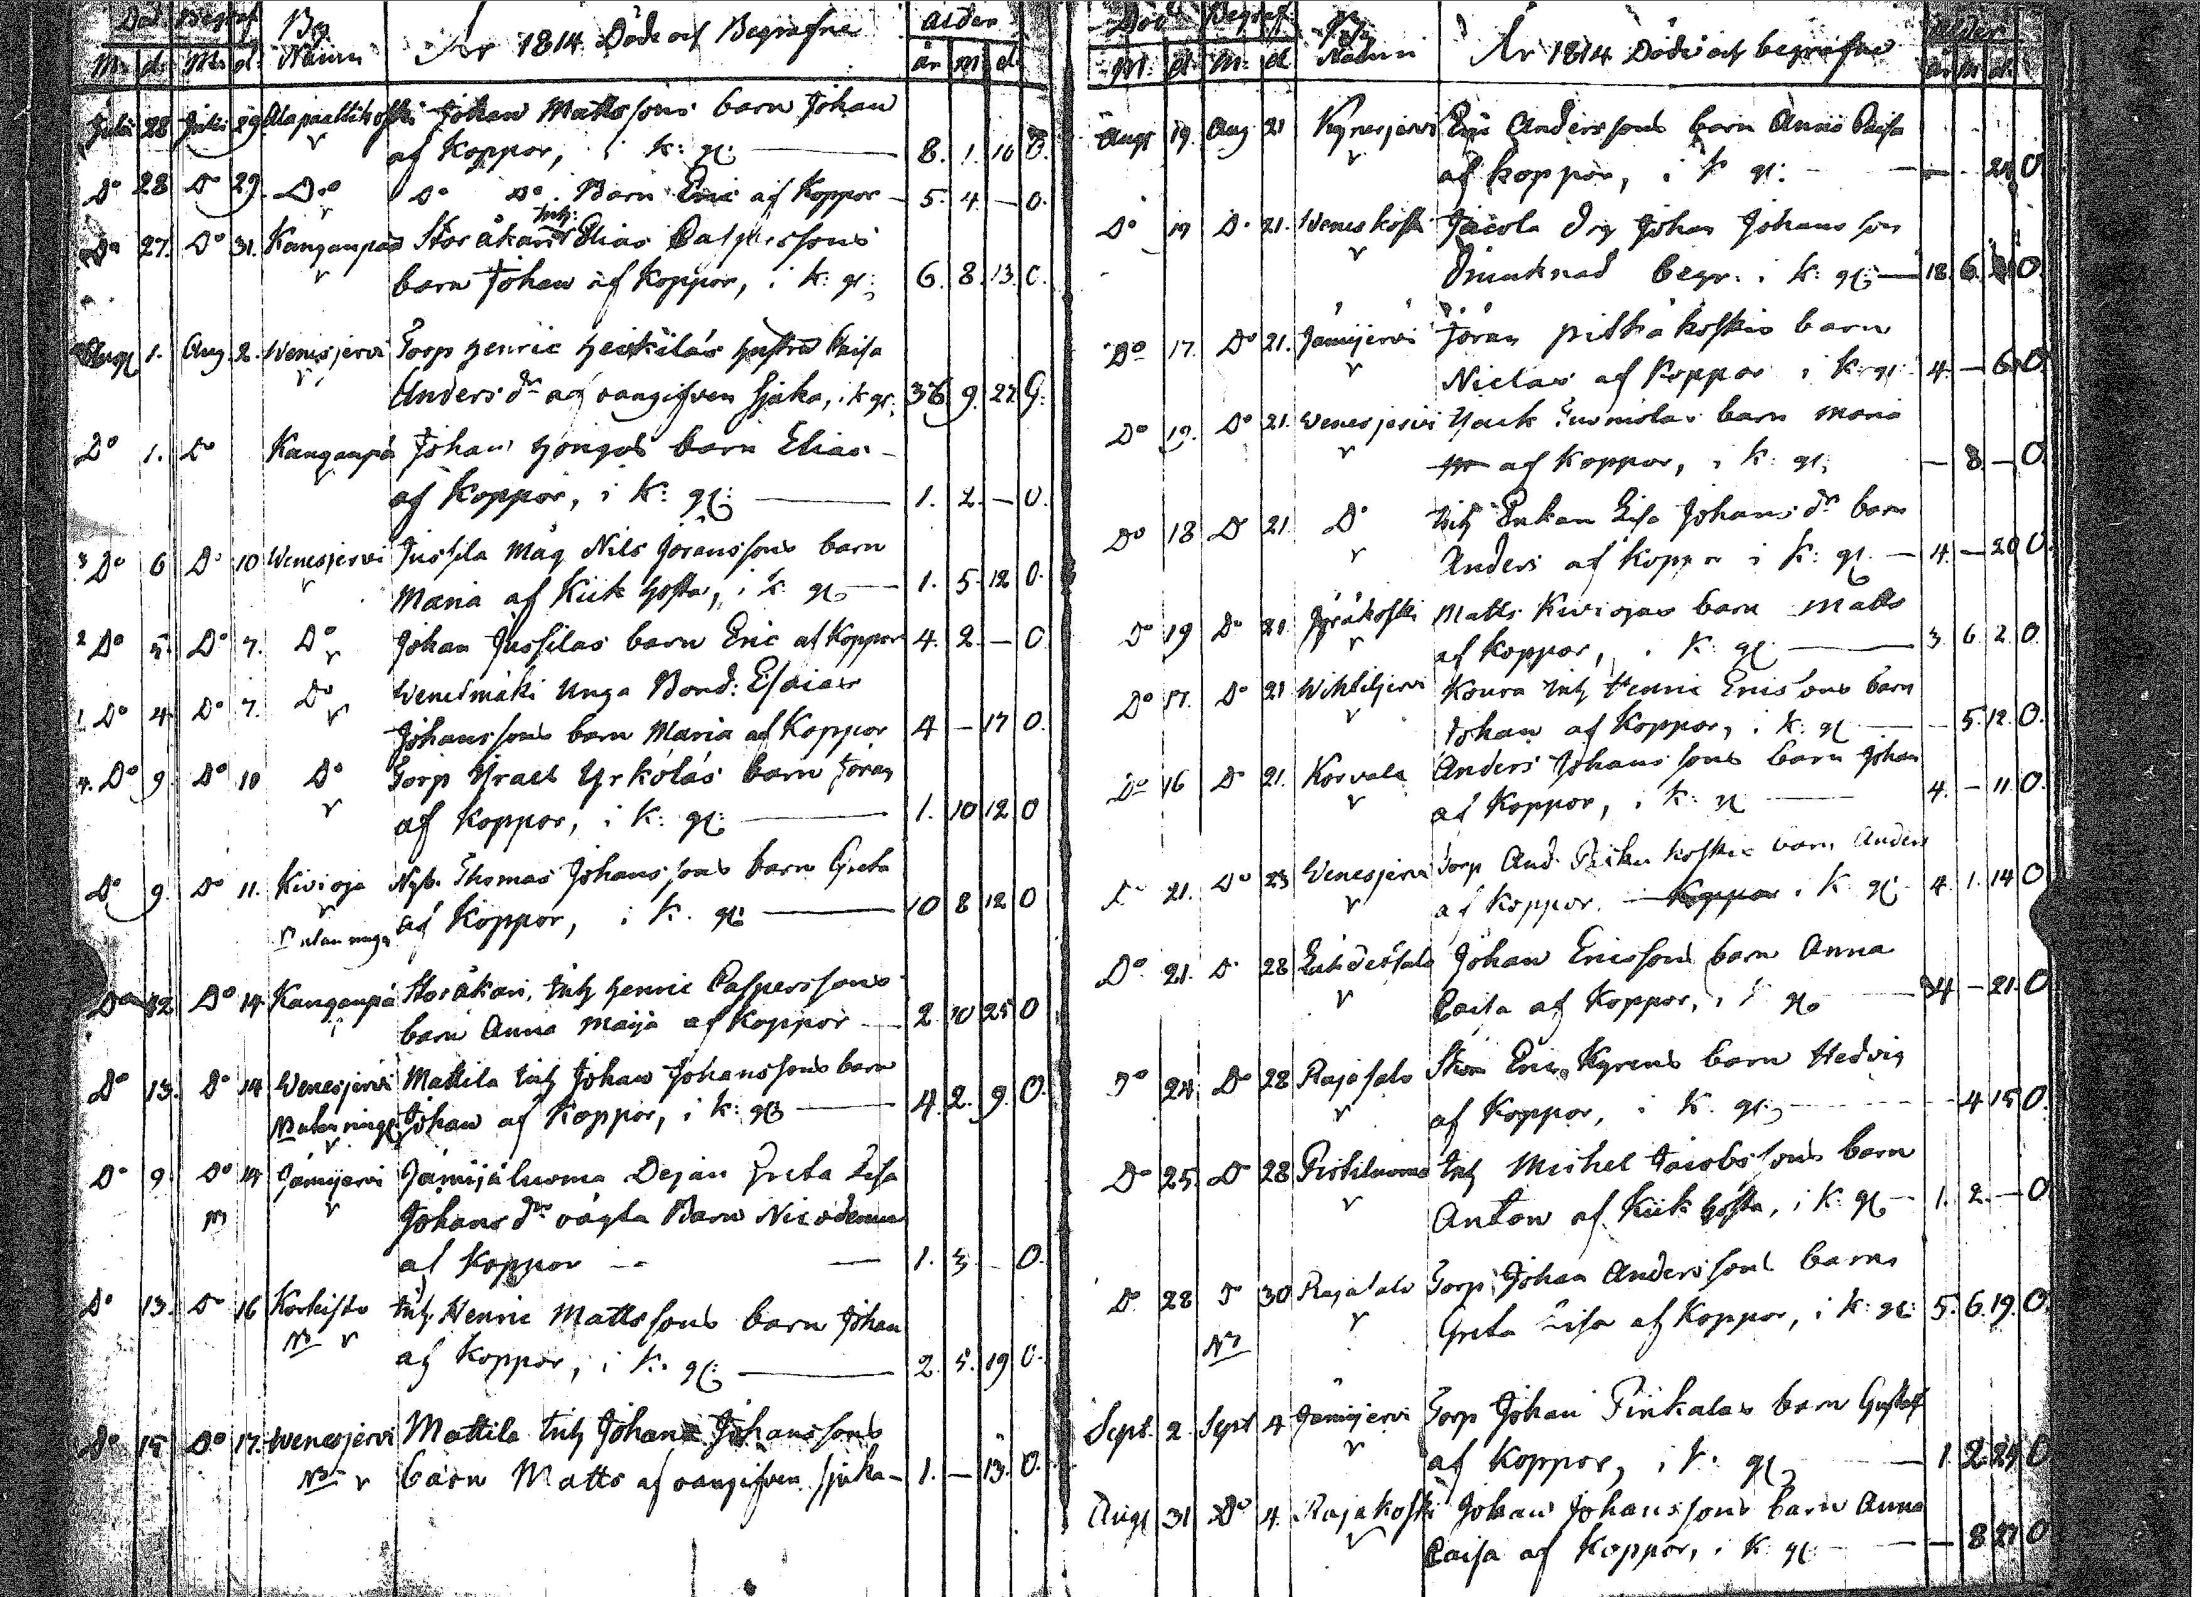 Död Begraf By Ålder
M: d: M: d. Namn År 1814 Döde och Begrafne år m d.
Julii 28 Julii 29 Alapaattikoski Johan Matts sons barn Johan
af Koppor, i k: g: 8. 1. 10 O.
Do 28 Do 29. Do Do Do Barn Eric af Koppor 5. 4. — O.
Inh:
Do 27. Do 31. Kangaupää Storåkari Elias Caspers sons
barn Johan af Koppor, i k: g: 6. 8. 13. O.
Aug 1. Aug. 2. Wenesjervi Torp Henric Heikkiläs hustru Caisa
Anders dr af oangifven sjuka, i k g: 36 9. 27 G:
Do 1. Do Kangaupä Johan Hongos barn Elias
af Koppor, i k: g: 1. 2. — O.
3 Do 6 Do 10 Wenesjervi Jussila Måg Nils Jöranssons barn
Maria af Kiik hosta, i k g: 1. 5. 12 O.
2 Do 5 Do 7. Do Johan Jussilas barn Eric af Koppor 4. 2. — O
1. Do 4 Do 7. Do Wenesmäki Unga Bond: Esaias
Johanssons barn Maria af Koppor 4 — 17 O.
4. Do 9. Do 10 Do Torp Israel Yrköläs barn Jöran
af Koppor, i k: g: 1. 10 12 O
Do 9. Do 11. Kivioja Nyb. Thomas Johanssons barn Greta
af Koppor, i k. g: 10 8 12 O
Do 12 Do 14 Kangaupä Storåkari, Inh Henric Caspers sons
barn Anna Maija af Koppor 2 10 25 O
Do 13. Do 14 Wenesjervi Mattila Inh Johan Johanssons barn
Johan af Koppor, i k: g: 4. 2. 9. O.
Do 9 Do 14 Jämijervi Jämijäluoma Dejan Greta Lisa
Johans dr oägta Barn Nicodemus
af Koppor 1. 3 — O.
Do 13. Do 16 Korkisto Inh. Henric Mattssons barn Johan
af Koppor, i k. g: 2. 5. 19 O.
Do 15 Do 17. Wenesjervi Mattila Inh Johan Johanssons
barn Matts af oangifven sjuka 1. — 13. O.
Död Begraf By Ålder
M: d. M: d Namn År 1814 Döde och begrafne år m d.
Aug 19. Aug 21 Kyrösjervi Eric Anderssons barn Anna Caisa
af koppor, i k g: — — 24 O.
Do 19 Do 21. Weneskoski Jacola drg Johan Johans son
drunknad begr. i k: g: 18. 6. O.
Do 17. Do 21. Jämijervi Jöran pitkäkoskis barn
Niclas af Koppor i k: g: 4 — 6. O.
Do 19. Do 21. Wenesjervi barn Maria
af Koppor, i k: g: — 8 — O.
Do 18 Do 21. Do Inh Enkan Lisa Johans dr barn
Anders af Koppor i k: g: 4. — 20 O.
Do 19 Do 21. Jyräkoski Matts Kiviojas barn Matts
af koppor, i k. g: 3 6 2 O.
Do 17. Do 21 Wihtiljervi Koura Inh Henric Ericsons barn
Johan af Koppor, i k. g: — 5. 12. O.
Do 16 Do 21. Korvala Anders Johanssons barn Johan
af Koppor, i k: g: 4. — 11. O.
Do 21. Do 23 Wenesjervi Torp And. barn Anders
af koppor. Koppor i k g: 4. 1. 14 O
Do 21. Do 28 Johan Ericsons barn Anna
Caisa af Koppor, i k g: 34 — 21. O
Do 24. Do 28 Rajasalo Eric Kyrens barn Hedvig
af Koppor, i k. g: — 4 15 O.
Do 25. Do 28 Pistiluoma Inh Michel Jacobssons barn
Anton af Kiik hosta, i k. g: 1. 2. — O
Do 28 Do 30 Rajasalo Torp Johan Anderssons barn
Greta Lisa af Koppor, i k: g: 5. 6. 19. O.
Sept. 2. Sept 4 Jämijervi Torp Johan Pinkalas barn Gustaf
af Koppor, i k. g: 1. 2. 29 O
Aug 31 Do 4. Rajakoski Johan Johanssons barn Anna
Caisa af Koppor, i k g: — 8 21 O